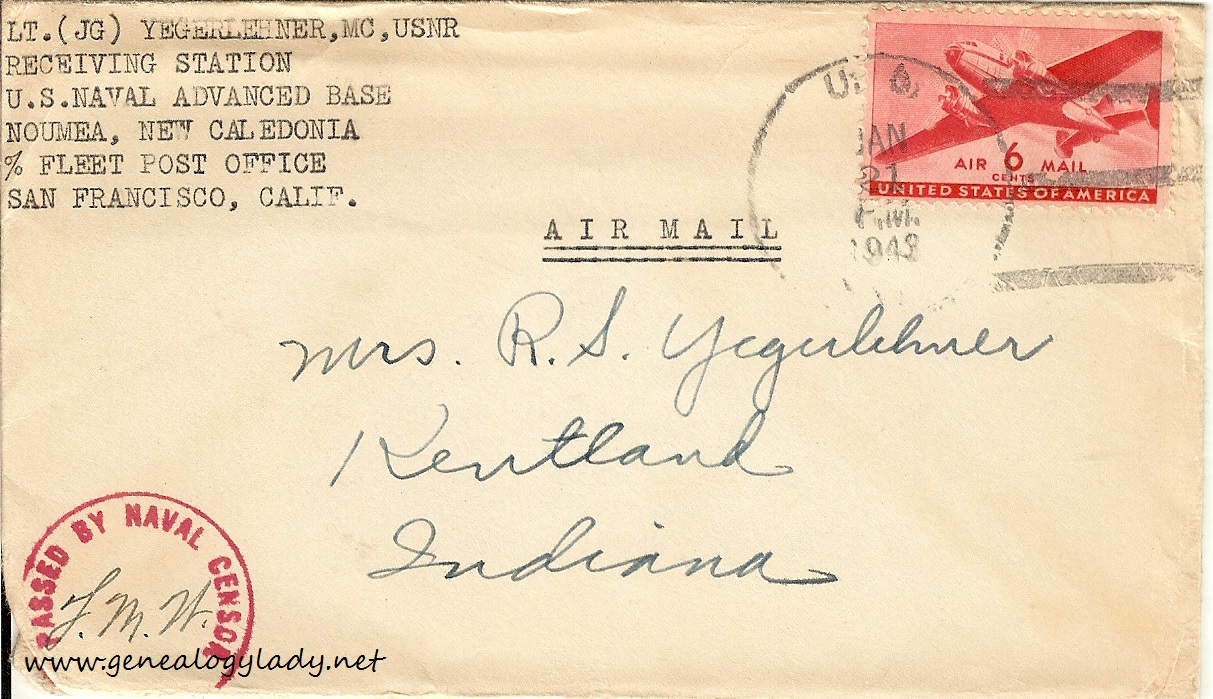 LT.(JG) YEGERLEHNER,MC,USNR
RECEIVING STATION
U.S.NAVAL ADVANCED BASE
NOUMEA, NEW CALEDONIA
% FLEET POST OFFICE
SAN FRANCISCO, CALIF.
JAN
21
P.M.
1943
AIR 6 MAIL
CENTS
UNITED STATES OF AMERICA
AIR MAIL
Mrs. R. S. Yegerlehner
Kentland
Indiana
PASSED BY NAVAL CENSOR
www.genealogylady.net